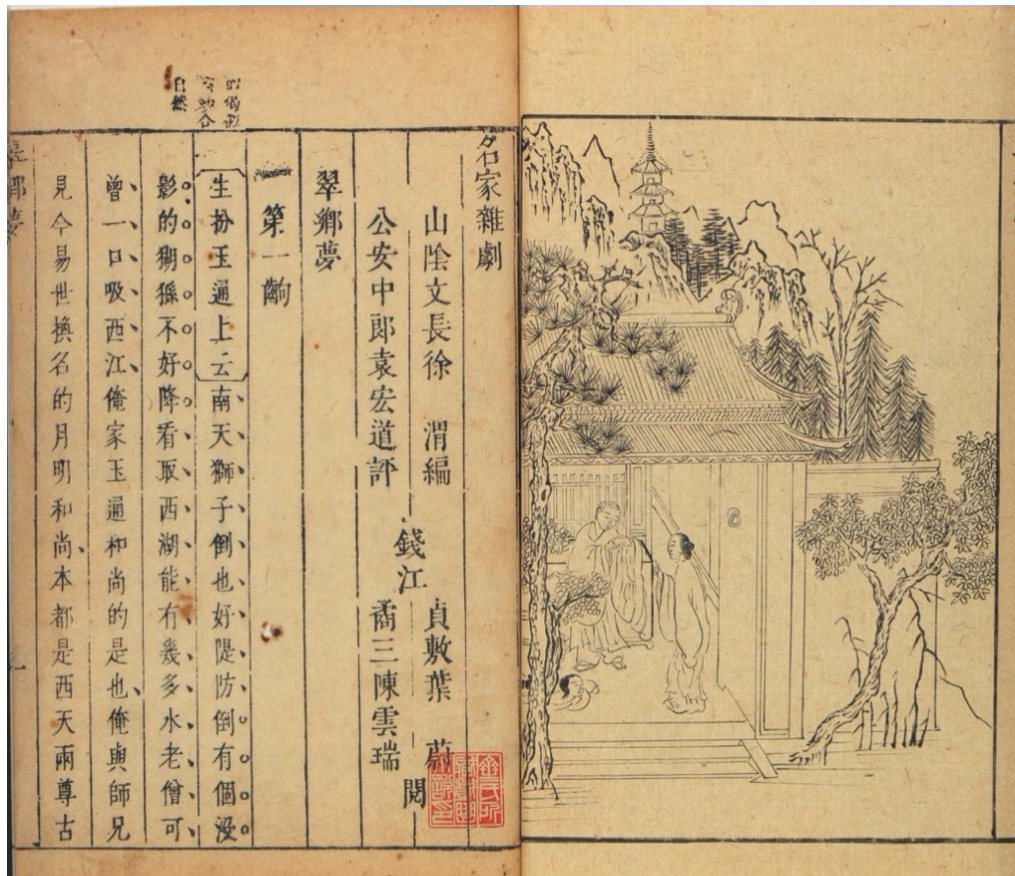 名家雜劇
山陰文長徐　渭編
公安中郎袁宏道評
錢江
貞敷葉　蔚
裔三陳雲瑞
閱
翠鄉夢
第一齣
生扮玉通上云南天獅子倒也好隄防倒有個沒
影的猢猻不好降看取西湖能有幾多水老僧可
曾一口吸西江俺家玉通和尚的是也俺與師兄
見今易世換名的月明和尚本都是西天兩尊古
自然
翠鄉夢